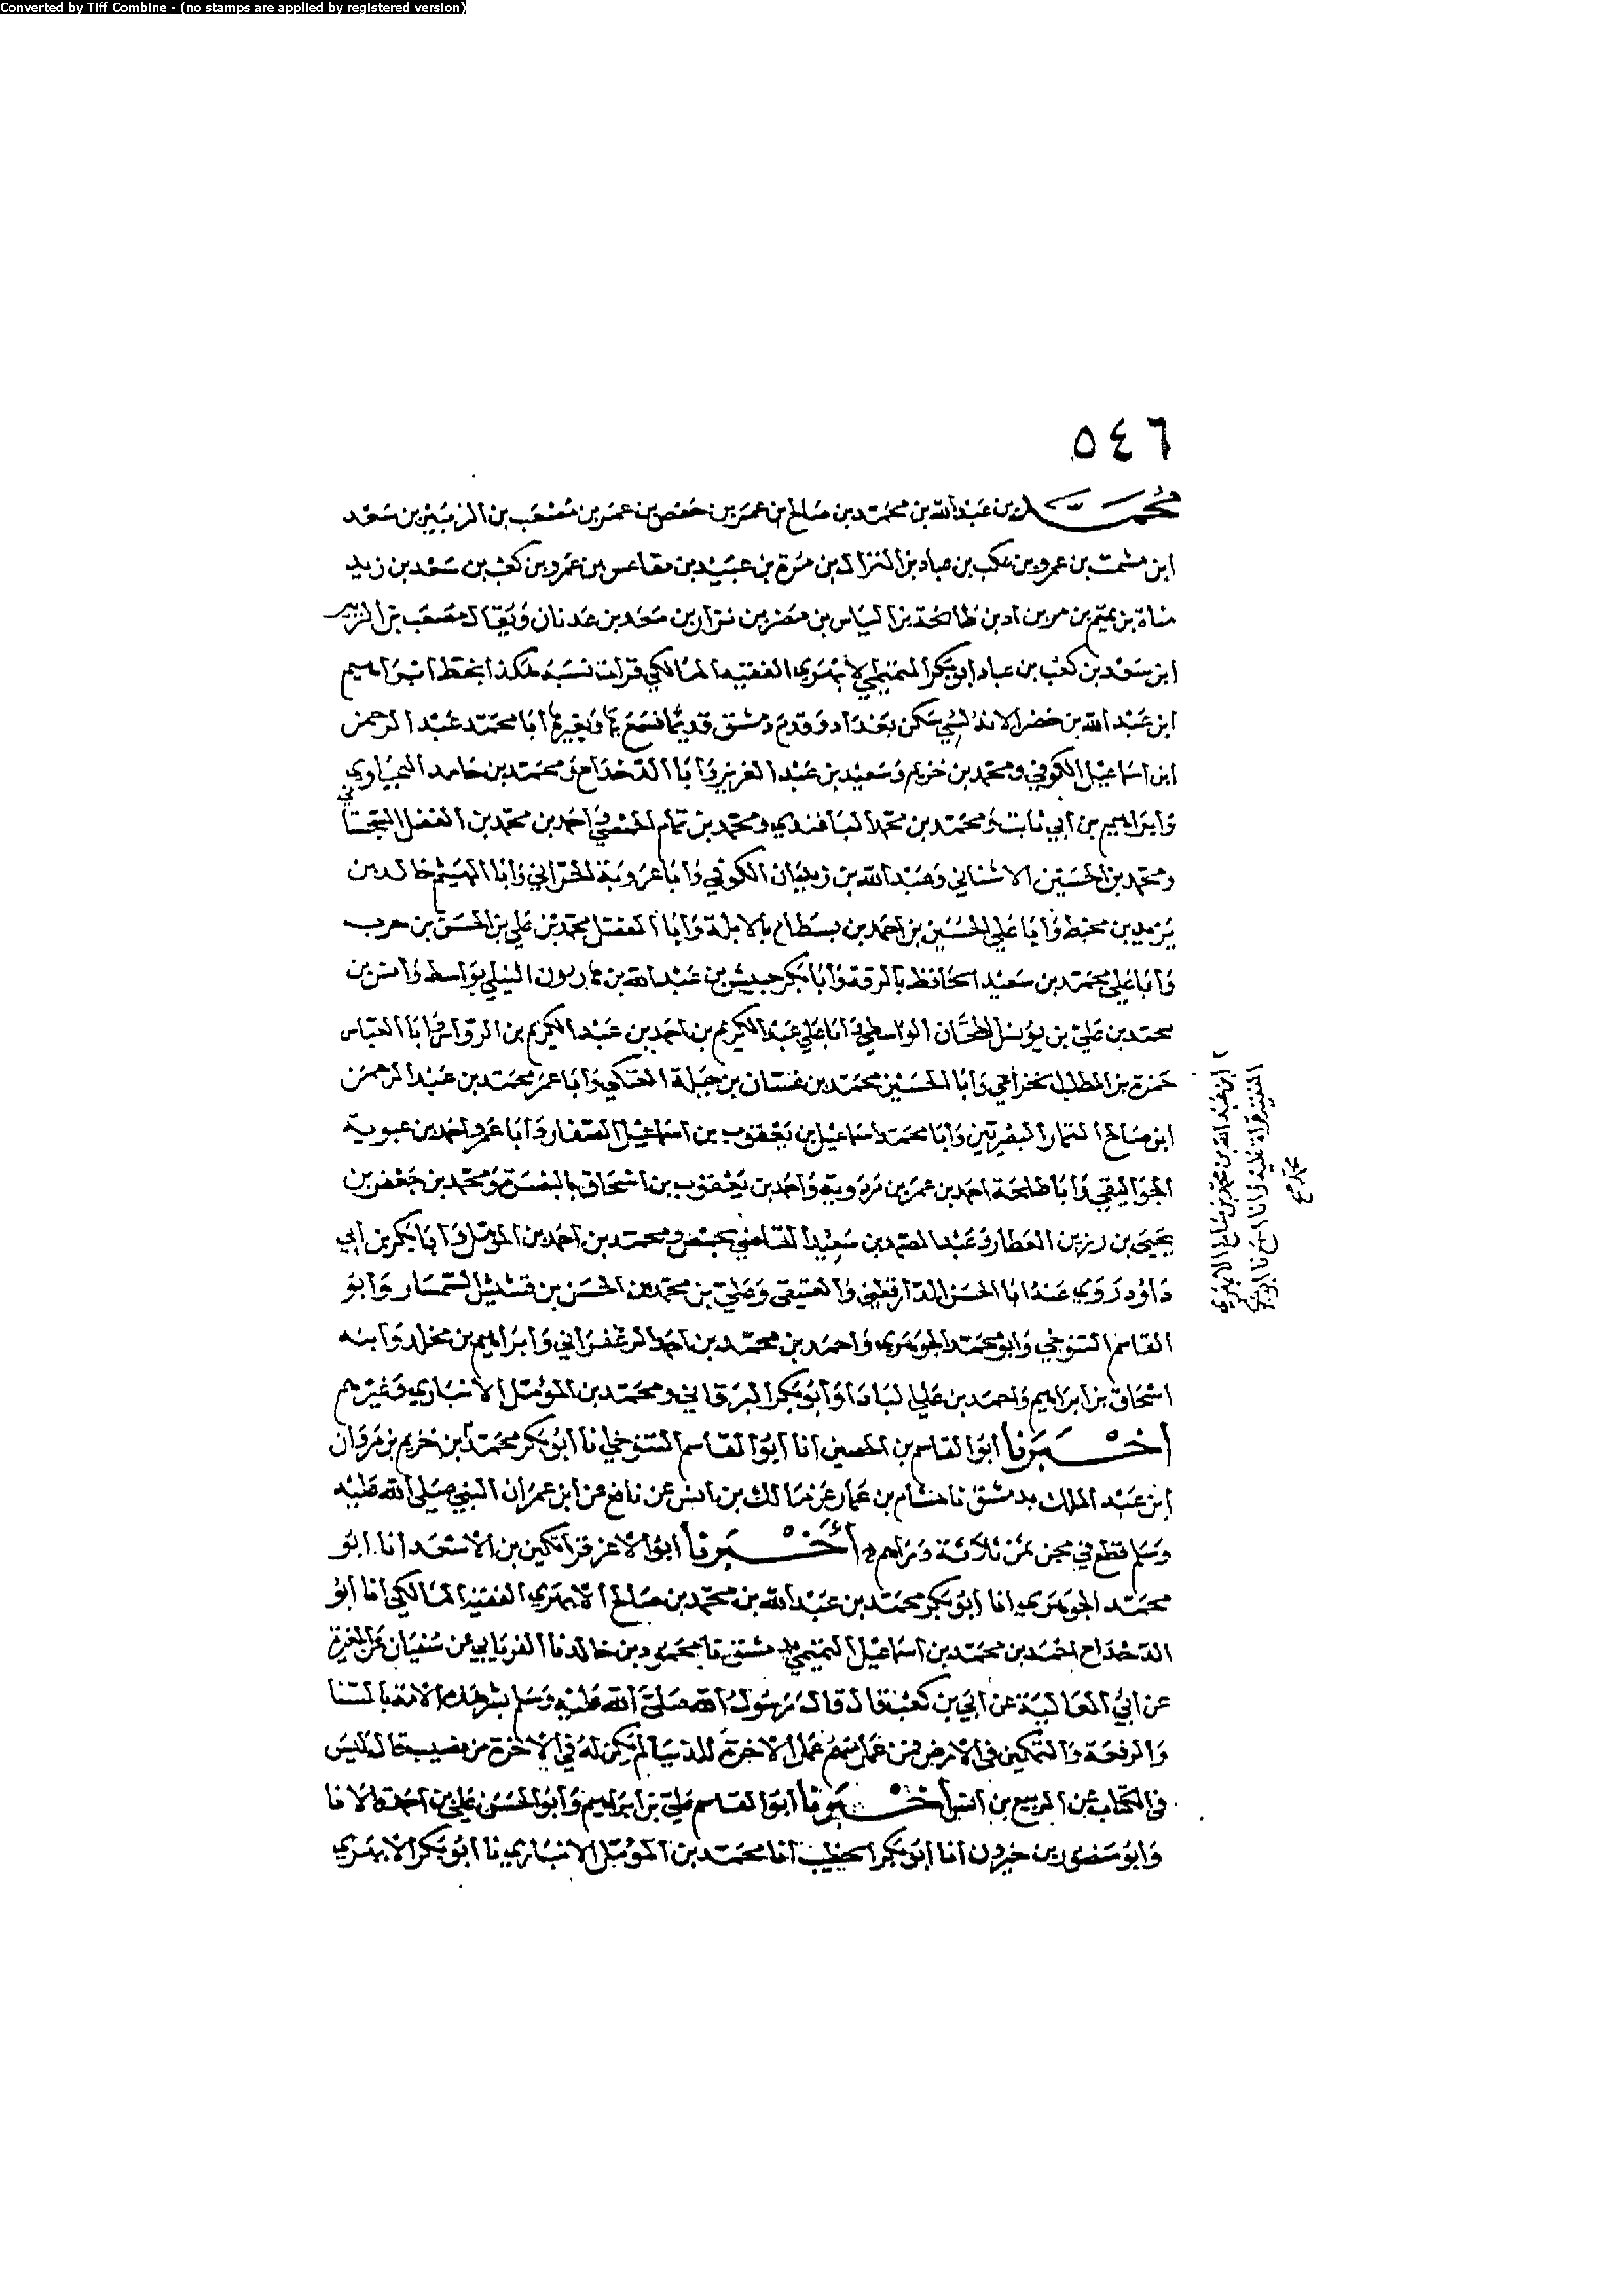 Converted by Tiff Combine - (no stamps are applied by registered version)
٥٤٦
محمد بن عبد الله بن محمد بن صالح بن عمر بن حفص بن عمر بن مصعب بن الزبير بن سعد
ابن عمرو بن كعب بن عباد بن النزال بن مرة بن عبيد بن مقاعس بن عمرو بن كعب بن سعد بن زيد
مناة بن تميم بن مر بن اد بن طابخة بن الياس بن مضر بن نزار بن معد بن عدنان ويقال مصعب بن الزبير
ابن سعد بن كعب بن عباد ابو بكر التميمي الابهري الفقيه المالكي قرات نسبه هكذا بخط ابراهيم
ابن عبد الله بن حضر الاندلسي سكن بغداد وقدم دمشق قديما فسمع بها وبغيرها ابا محمد عبد الرحمن
ابن اسماعيل الكوفي ومحمد بن خريم وسعيد بن عبد العزيز وابا الدحداح ومحمد بن حامد اليحياوي
وابراهيم بن ابي ثابت ومحمد بن محمد الباغندي ومحمد بن تمام الحمصي واحمد بن محمد بن الفضل السجستاني
ومحمد بن الحسين الاشناني وعبد الله بن زيدان الكوفي وابا عروبة الحراني وابا الهيثم خالد بن
يزيد بن وابا علي الحسين بن احمد بن بسطام بالابلة وابا الفضل محمد بن علي بن الحسن بن حرب
وابا علي محمد بن سعيد الحافظ بالرقة وابا بكر حبيش بن عبد الله بن هارون النيلي بواسط وانس بن
محمد بن علي بن يونس الطحان الواسطي وابا علي عبد الكريم بن احمد بن عبد الكريم بن الرواس وابا العباس
حمزة بن المطلب الخزاعي وابا الحسين محمد بن غسان بن جبلة العتكي وابا عمر محمد بن عبد الرحمن
ابن صالح التمار البصريين وابا محمد اسماعيل بن يعقوب بن اسماعيل الصفار وابا عمرو احمد بن عبوية
الجواليقي وابا طلحة احمد بن عمر بن مردوية واحمد بن يعقوب بن اسحاق بالبصرة ومحمد بن جعفر بن
يحيى بن رزين العطار وعبد الصمد بن سعيد القاضي بحمص ومحمد بن احمد بن المؤمل وابا بكر بن ابي
داود روي عنه ابا الحسن الدارقطني والعتيقي وعلي بن محمد بن الحسن بن قشيش السمسار وابو
القاسم التنوخي وابو محمد الجوهري واحمد بن محمد بن احمد الزعفراني وابراهيم بن مخلد وابنه
اسحاق بن ابراهيم واحمد بن علي البادا وابو بكر البرقاني ومحمد بن المؤمل الانباري وغيرهم
اخبرنا ابو القاسم بن الحصين انا ابو القاسم التنوخي نا ابو بكر محمد نا ابن خريم بن مروان
ابن عبد الملك بدمشق نا هشام بن عمار عن مالك بن انس عن نافع عن ابن عمر ان النبي صلى الله عليه
وسلم قطع في مجن ثمن ثلاثة دراهم اخبرنا ابو الاعز قراتكين بن الاسعد انا ابو
محمد الجوهري انا ابو بكر محمد بن عبد الله بن محمد بن صالح الابهري الفقيه المالكي انا ابو
الدحداح احمد بن محمد بن اسماعيل التميمي بدمشق نا محمود بن خالد نا الفريابي عن سفيان عن المغيرة
عن ابي العالية عن ابي بن كعب قال قال رسول الله صلى الله عليه وسلم بشر هذه الامة بالسنا
والرفعة والتمكين في الارض فمن عمل منهم عمل الاخرة للدنيا لم يكن له في الاخرة من نصيب قال ليس
في الكتاب عن الربيع بن انس اخبرنا ابو القاسم علي بن ابراهيم وابو الحسن علي بن احمد قالا نا
وابو منصور بن خيرون انا ابو بكر الخطيب انا محمد بن المؤمل الانباري نا ابو بكر الابهري
ابن عبد الله بن محمد بن صالح الابهري
الفقيه قراة عليه وانا اسمع نا ابو بكر
محمد صح